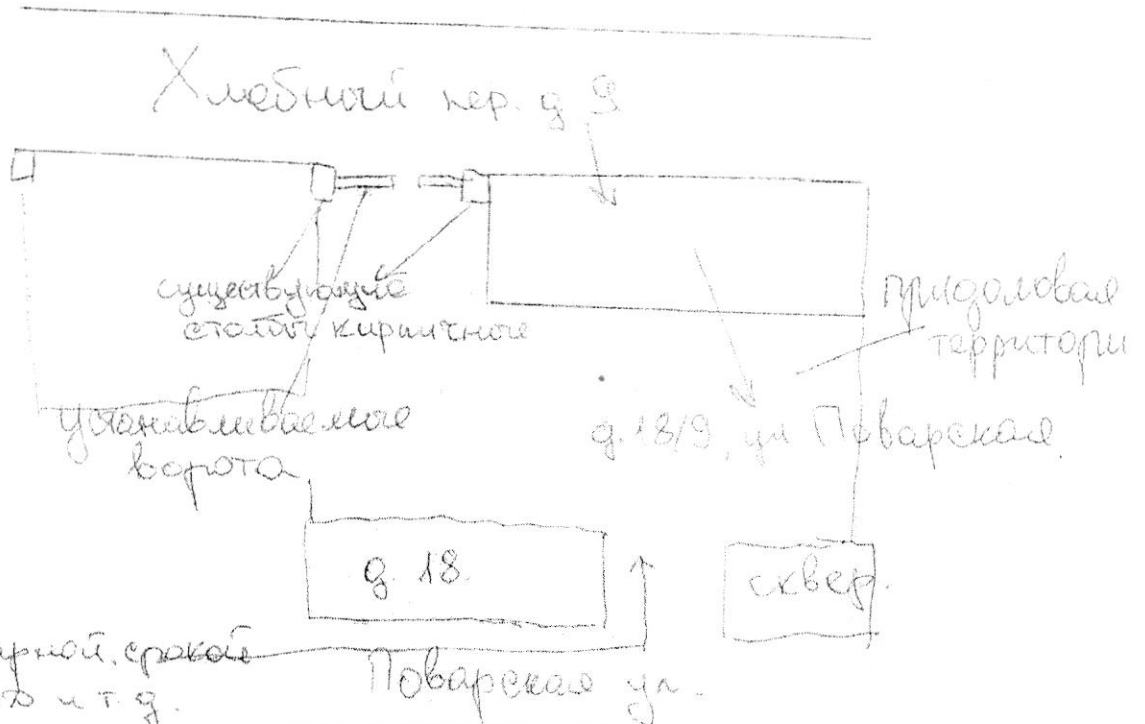 Хлебный пер. д 9
существующие
столбы кирпичные
придомовая
территори
устанавливаемые
ворота
д.18/9, ул Поварская
д. 18.
сквер.
и т. д.
Поварская ул.